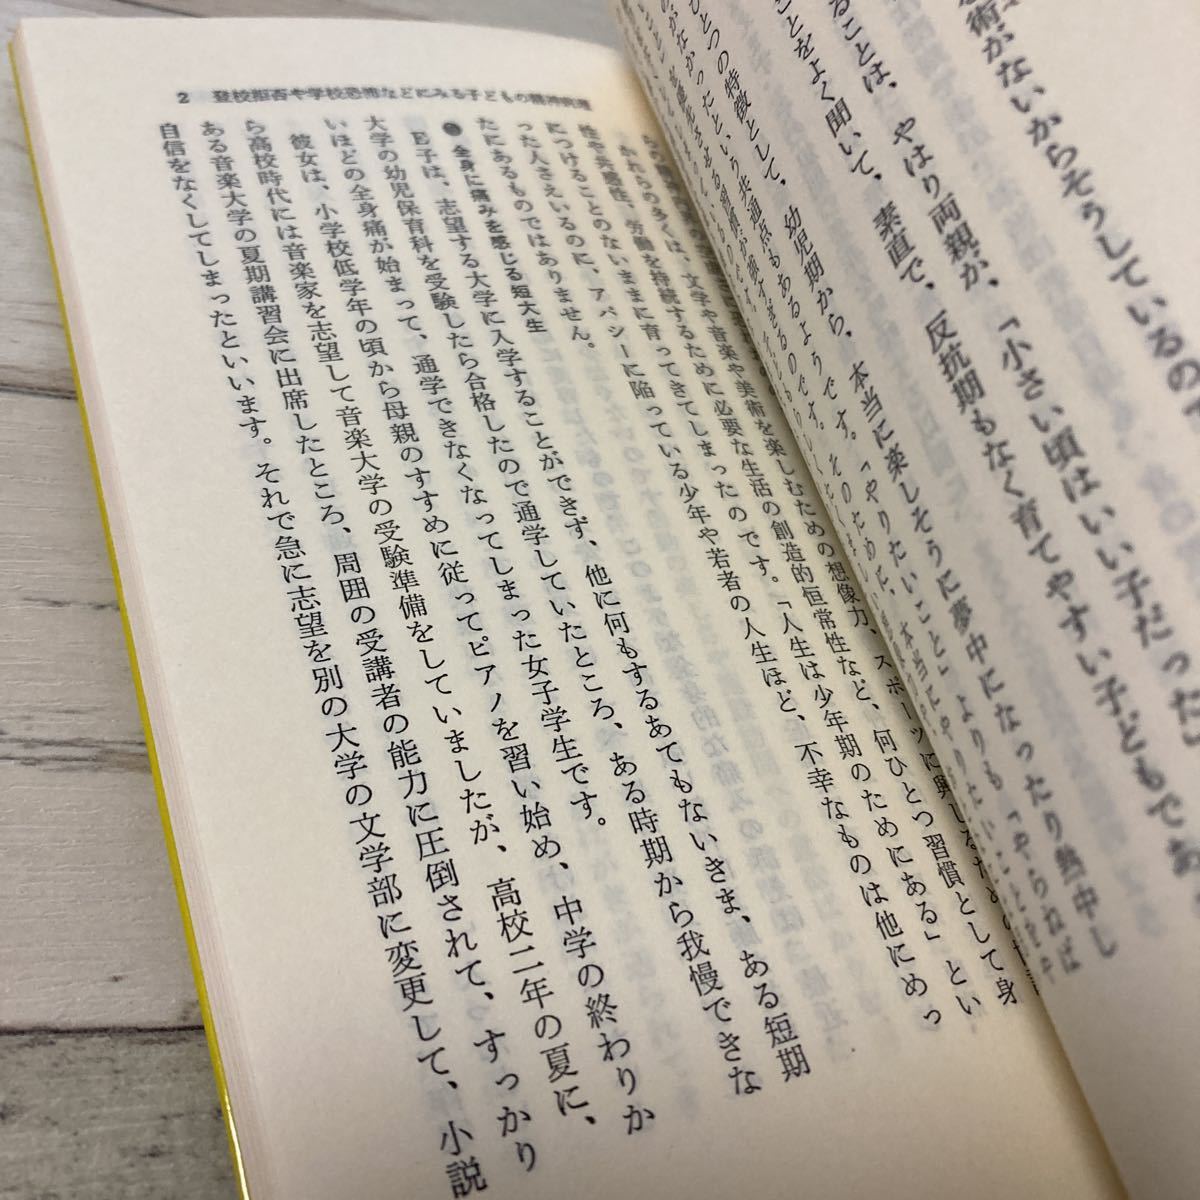 術がないからそうしているので
ることは、やはり両親が、「小さい頃はいい子だった」
ことをよく聞いて、素直で、反抗期もなく育てやすい子どもであ
ひとつの特徴として、幼児期から、本当に楽しそうに夢中になったり熱中し
がなかったという共通点もあるようです。「やりたいこと」よりも「やらねば
2 登校拒否や学校恐怖などにみる子どもの精神病理
かれらの多くは、文学や音楽や美術を楽しむための想像力、スポーツに興じるための
性や共感性、労働を持続するために必要な生活の創造的恒常性など、何ひとつ習慣として身
につけることのないままに育ってきてしまったのです。「人生は少年期のためにある」とい
った人さえいるのに、アパシーに陥っている少年や若者の人生ほど、不幸なものは他にめっ
たにあるものではありません。
● 全身に痛みを感じる短大生
E子は、志望する大学に入学することができず、他に何もするあてもないまま、ある短期
大学の幼児保育科を受験したら合格したので通学していたところ、ある時期から我慢できな
いほどの全身痛が始まって、通学できなくなってしまった女子学生です。
彼女は、小学校低学年の頃から母親のすすめに従ってピアノを習い始め、中学の終わりか
ら高校時代には音楽家を志望して音楽大学の受験準備をしていましたが、高校二年の夏に、
ある音楽大学の夏期講習会に出席したところ、周囲の受講者の能力に圧倒されて、すっかり
自信をなくしてしまったといいます。それで急に志望を別の大学の文学部に変更して、小説